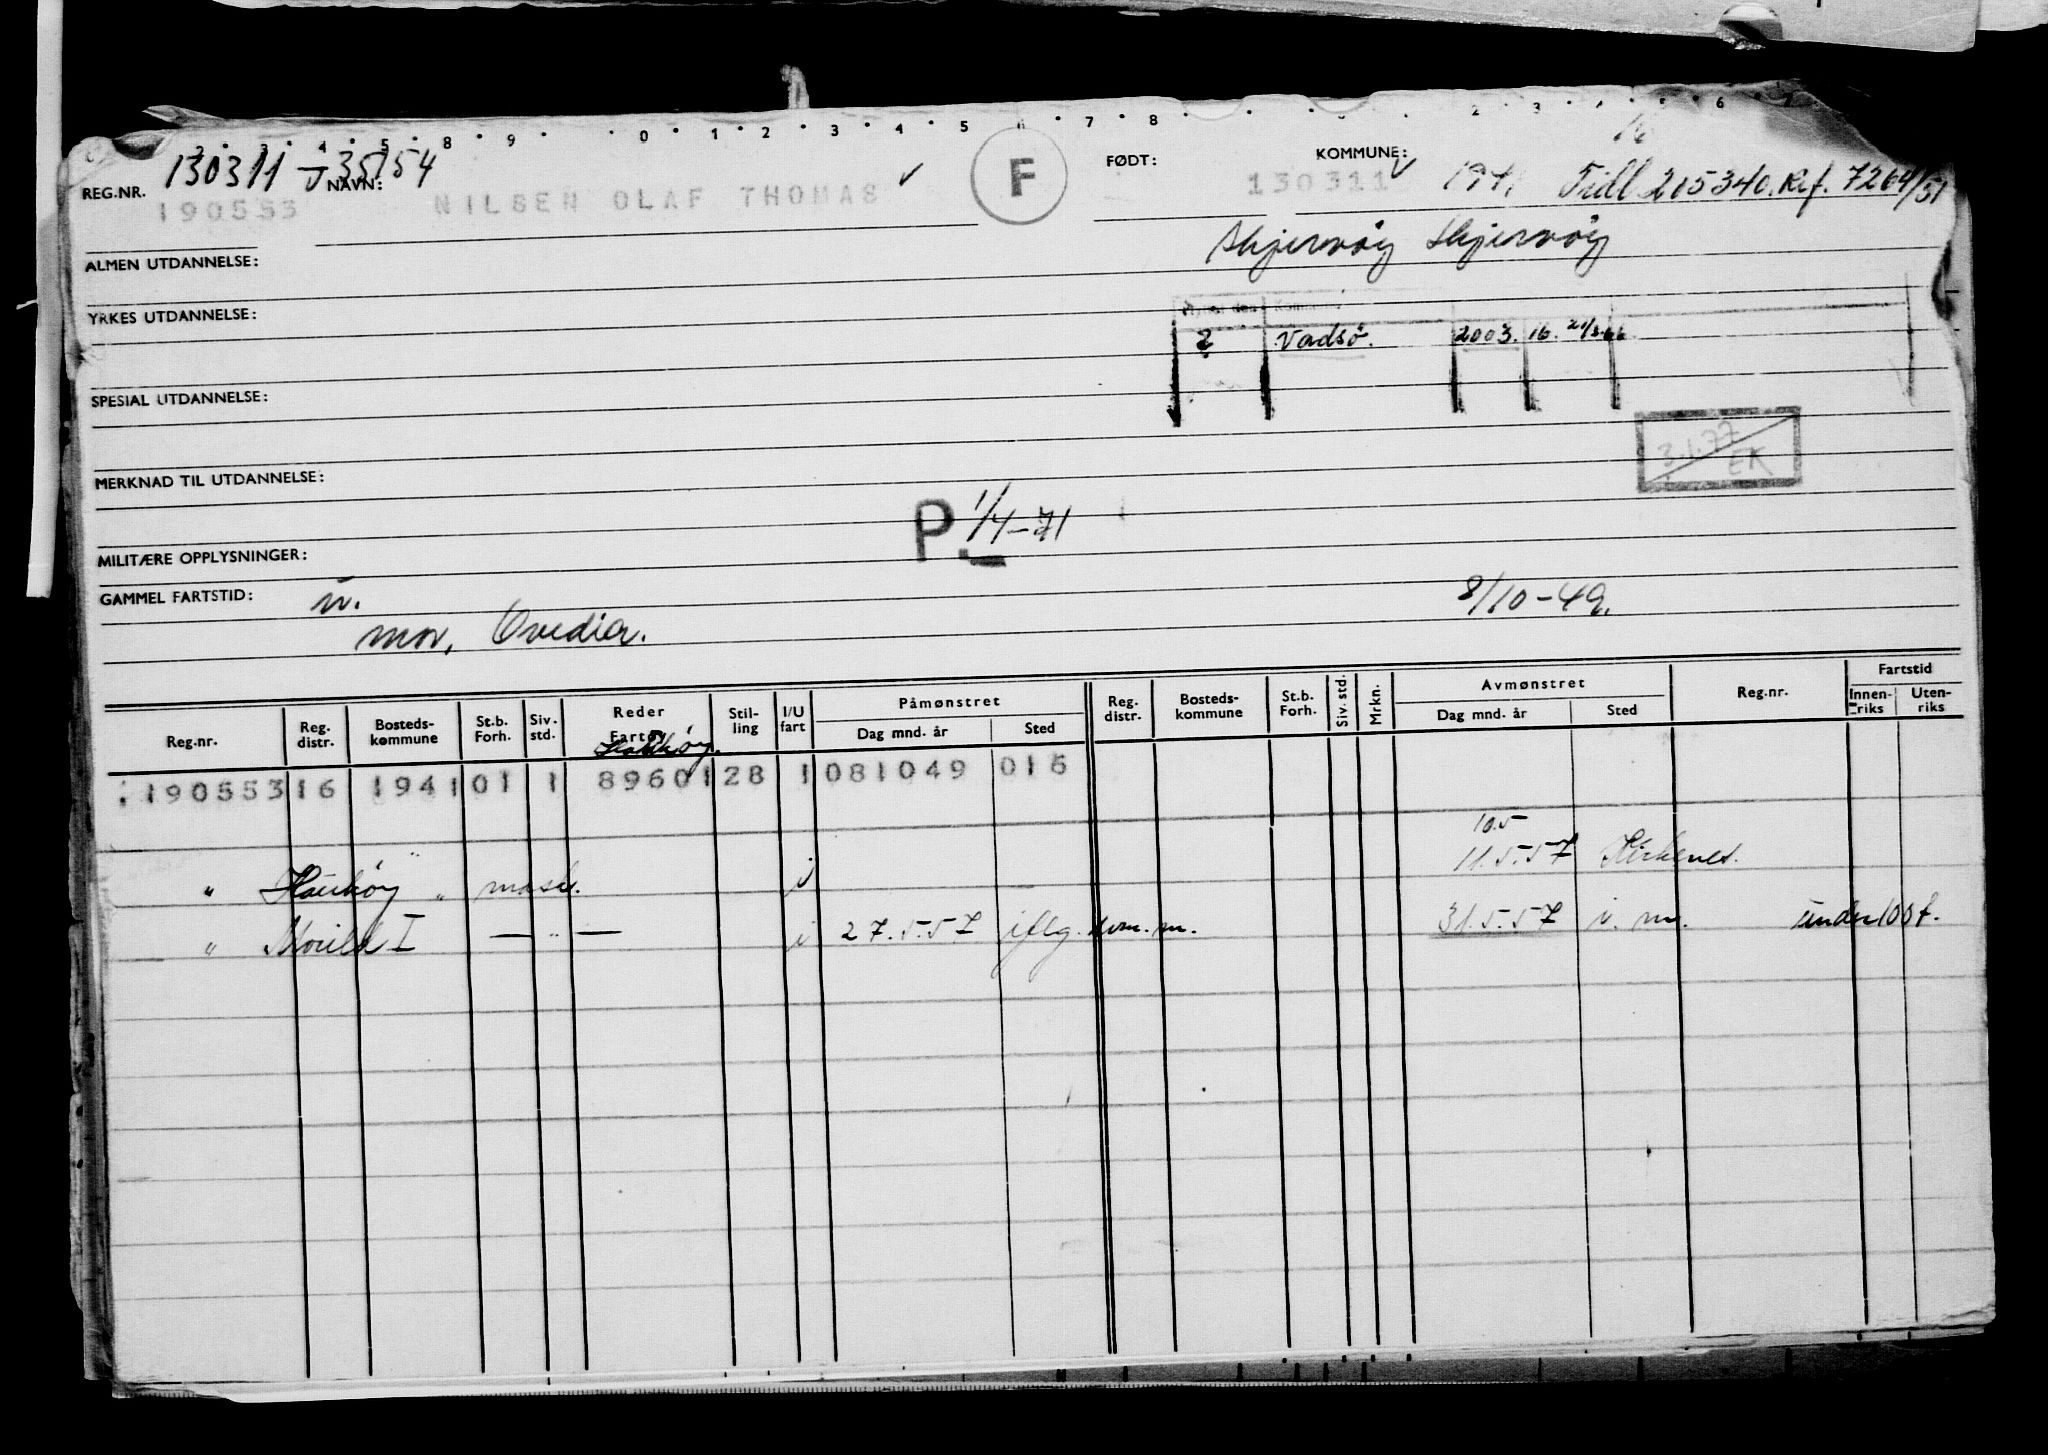 REG.NR. 130311 J 35154 NAVN:
190553 NILSEN OLAF THOMAS F FØDT: 130311 KOMMUNE: 1941 Tidl 215340. Ref. 7264/51
Skjervøy Skjervøy
ALMEN UTDANNELSE:
YRKES UTDANNELSE:
2 Vadsö. 2003. 16.
SPESIAL UTDANNELSE:
3.1.77 EK
MERKNAD TIL UTDANNELSE:
P. 1/4-71
MILITÆRE OPPLYSNINGER:
GAMMEL FARTSTID: 8/10-49.
mor,
Reg.nr. Reg. distr. Bosteds-kommune St.b. Forh. Siv. std. Reder Fartøy Stil-ling I/U fart Påmønstret Dag mnd. år Sted Reg. distr. Bosteds-kommune St.b. Forh. Siv. std. Mrkn. Avmønstret Dag mnd. år Sted Reg.nr. Fartstid Innen-riks Uten-riks
Haukøy.
190553 16 1941 01 1 89601 28 1 081049 016
10.5
" Haukøy " mask. i 11.5.57 Kirkenes.
" Morild I — " — i 27.5.57 iflg. nm. m. 31.5.57 i. m. under 100 t.